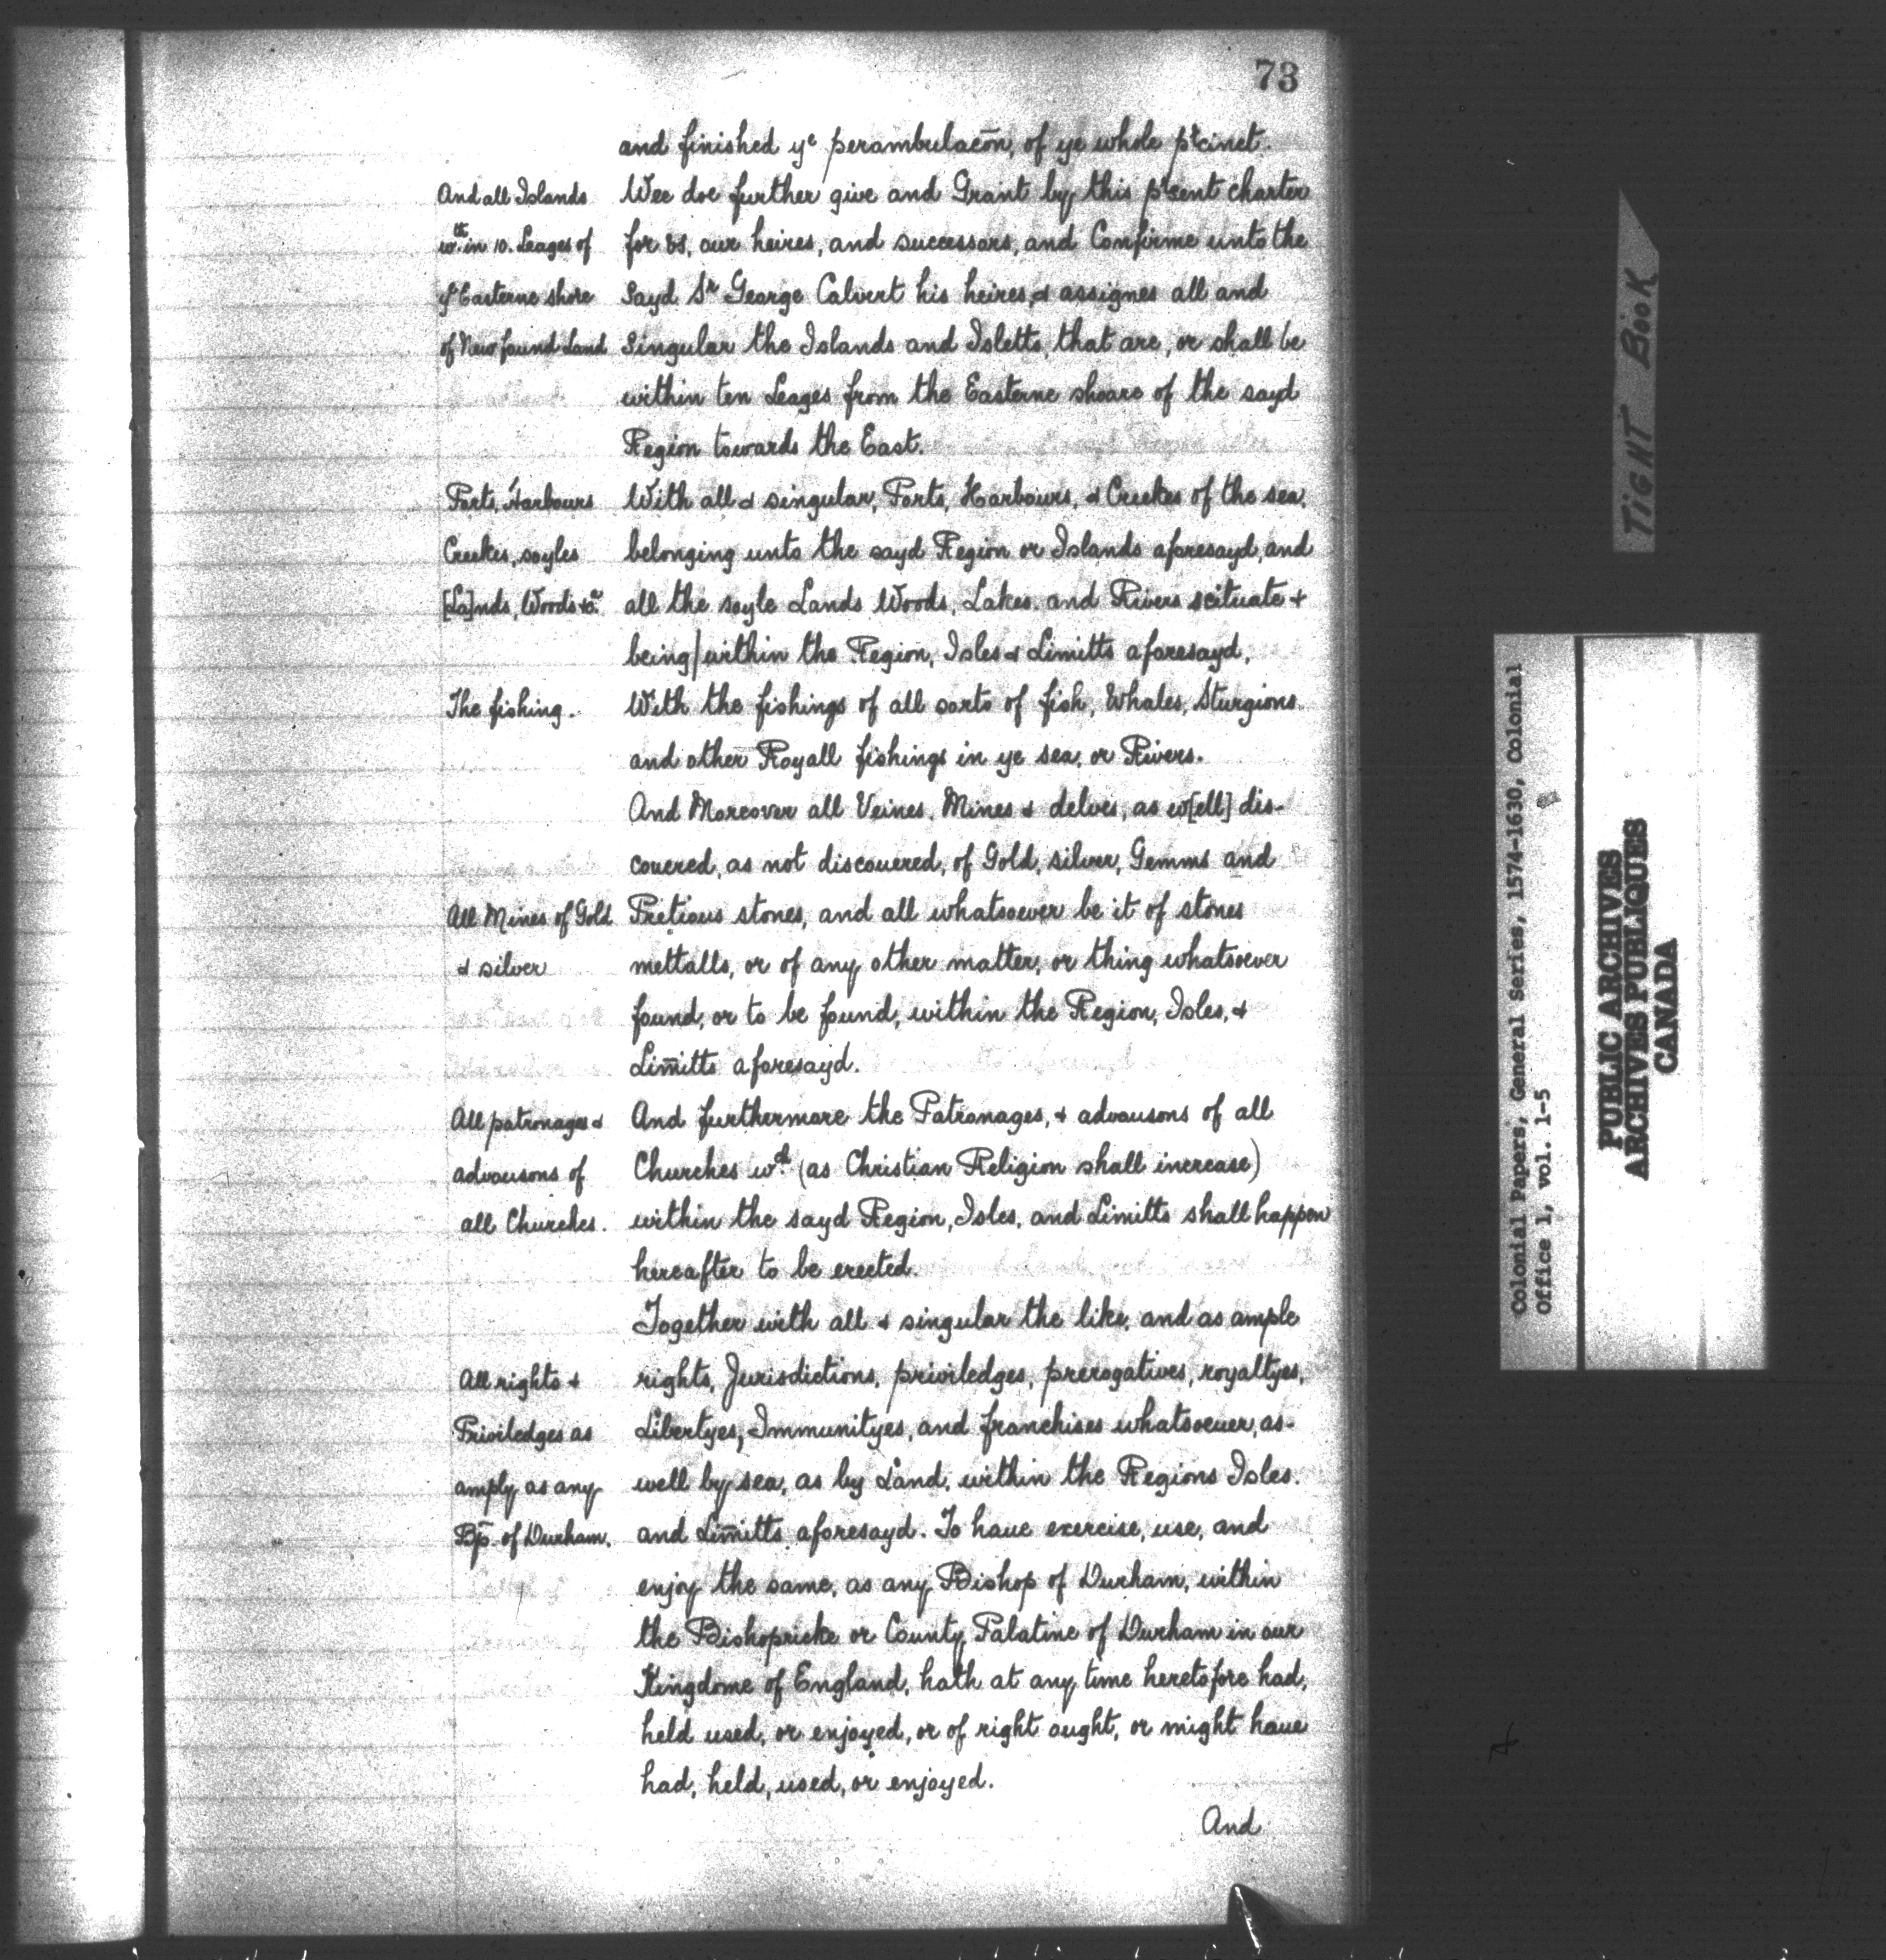 73
and finished yᵉ perambulacōn, of ye whole p'cinct.
And all Islands
wᵗʰ.in 10. Leages of
yᵉ Easterne shore
of New found Land
Wee doe further give and Grant by this p'sent charter
for us, our heires, and successors, and Confirme unto the
Sayd Sʳ George Calvert his heires, & assignes all and
Singular the Islands and Isletts, that are, or shall be
within ten Leages from the Easterne shoare of the sayd
Region towards the East.
Ports, Harbours
Creekes, soyles
[La]nds, Woods &cᵃ.
With all & singular, Ports, Harbours, & Creekes of the sea,
belonging unto the sayd Region or Islands aforesayd, and
all the soyle Lands Woods, Lakes, and Rivers scituate &
being/within the Region, Isles & Limitts aforesayd,
The fishing.
With the fishings of all sorts of fish, Whales, Sturgions
and other Royall fishings in ye sea, or Rivers.
And Moreover all Veines, Mines & delves, as w[ell] dis-
couered, as not discouered, of Gold, silver, Gemms and
All Mines of Gold
& silver
Pretious stones, and all whatsoever be it of stones
mettalls, or of any other matter, or thing whatsoever
found, or to be found, within the Region, Isles, &
Lim̄itts aforesayd.
All patronages &
advousons of
all Churches.
And furthermore the Patronages, & advousons of all
Churches wᶜʰ. (as Christian Religion shall increase)
within the sayd Region, Isles, and Limitts shall happen
hereafter to be erected.
Together with all & singular the like, and as ample
All rights &
Priviledges as
amply as any
Bp̄. of Durham.
rights, Jurisdictions, priviledges, prerogatives, royaltyes,
Libertyes, Immunityes, and franchises whatsoeuer, as-
well by sea, as by Land, within the Regions Isles.
and Lim̄itts aforesayd. To haue exercise, use, and
enjoy the same, as any Bishop of Durham, within
the Bishopricke or County Palatine of Durham in our
Kingdome of England, hath at any time heretofore had,
held used, or enjoyed, or of right ought, or might haue
had, held, used, or enjoyed.
And
TIGHT BOOK
Colonial Papers, General Series, 1574-1630, Colonial
Office 1, vol. 1-5
PUBLIC ARCHIVES
ARCHIVES PUBLIQUES
CANADA